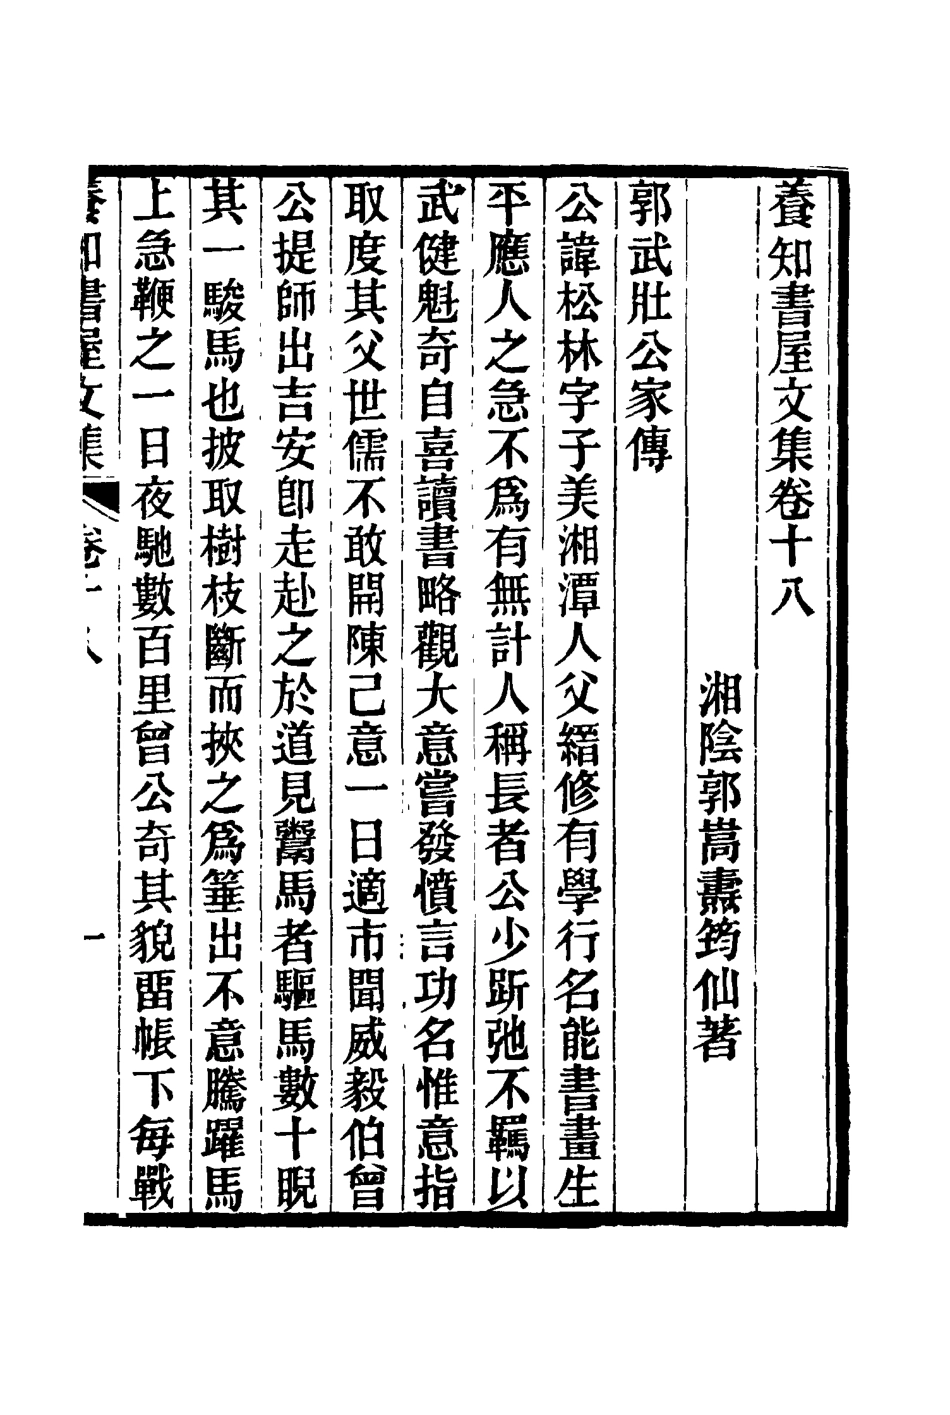 養知書屋文集卷十八
湘陰郭嵩燾筠仙著
郭武壯公家傳
公諱松林字子美湘潭人父縉修有學行名能書畫生
平應人之急不爲有無計人稱長者公少跅弛不羈以
武健魁奇自喜讀書略觀大意嘗發憤言功名惟意指
取度其父世儒不敢開陳己意一日適市聞威毅伯曾
公提師出吉安卽走赴之於道見鬻馬者驅馬數十睨
其一駿馬也披取樹枝斷而挾之爲箠出不意騰躍馬
上急鞭之一日夜馳數百里曾公奇其貌畱帳下每戰
養知書屋文集 卷十八 一